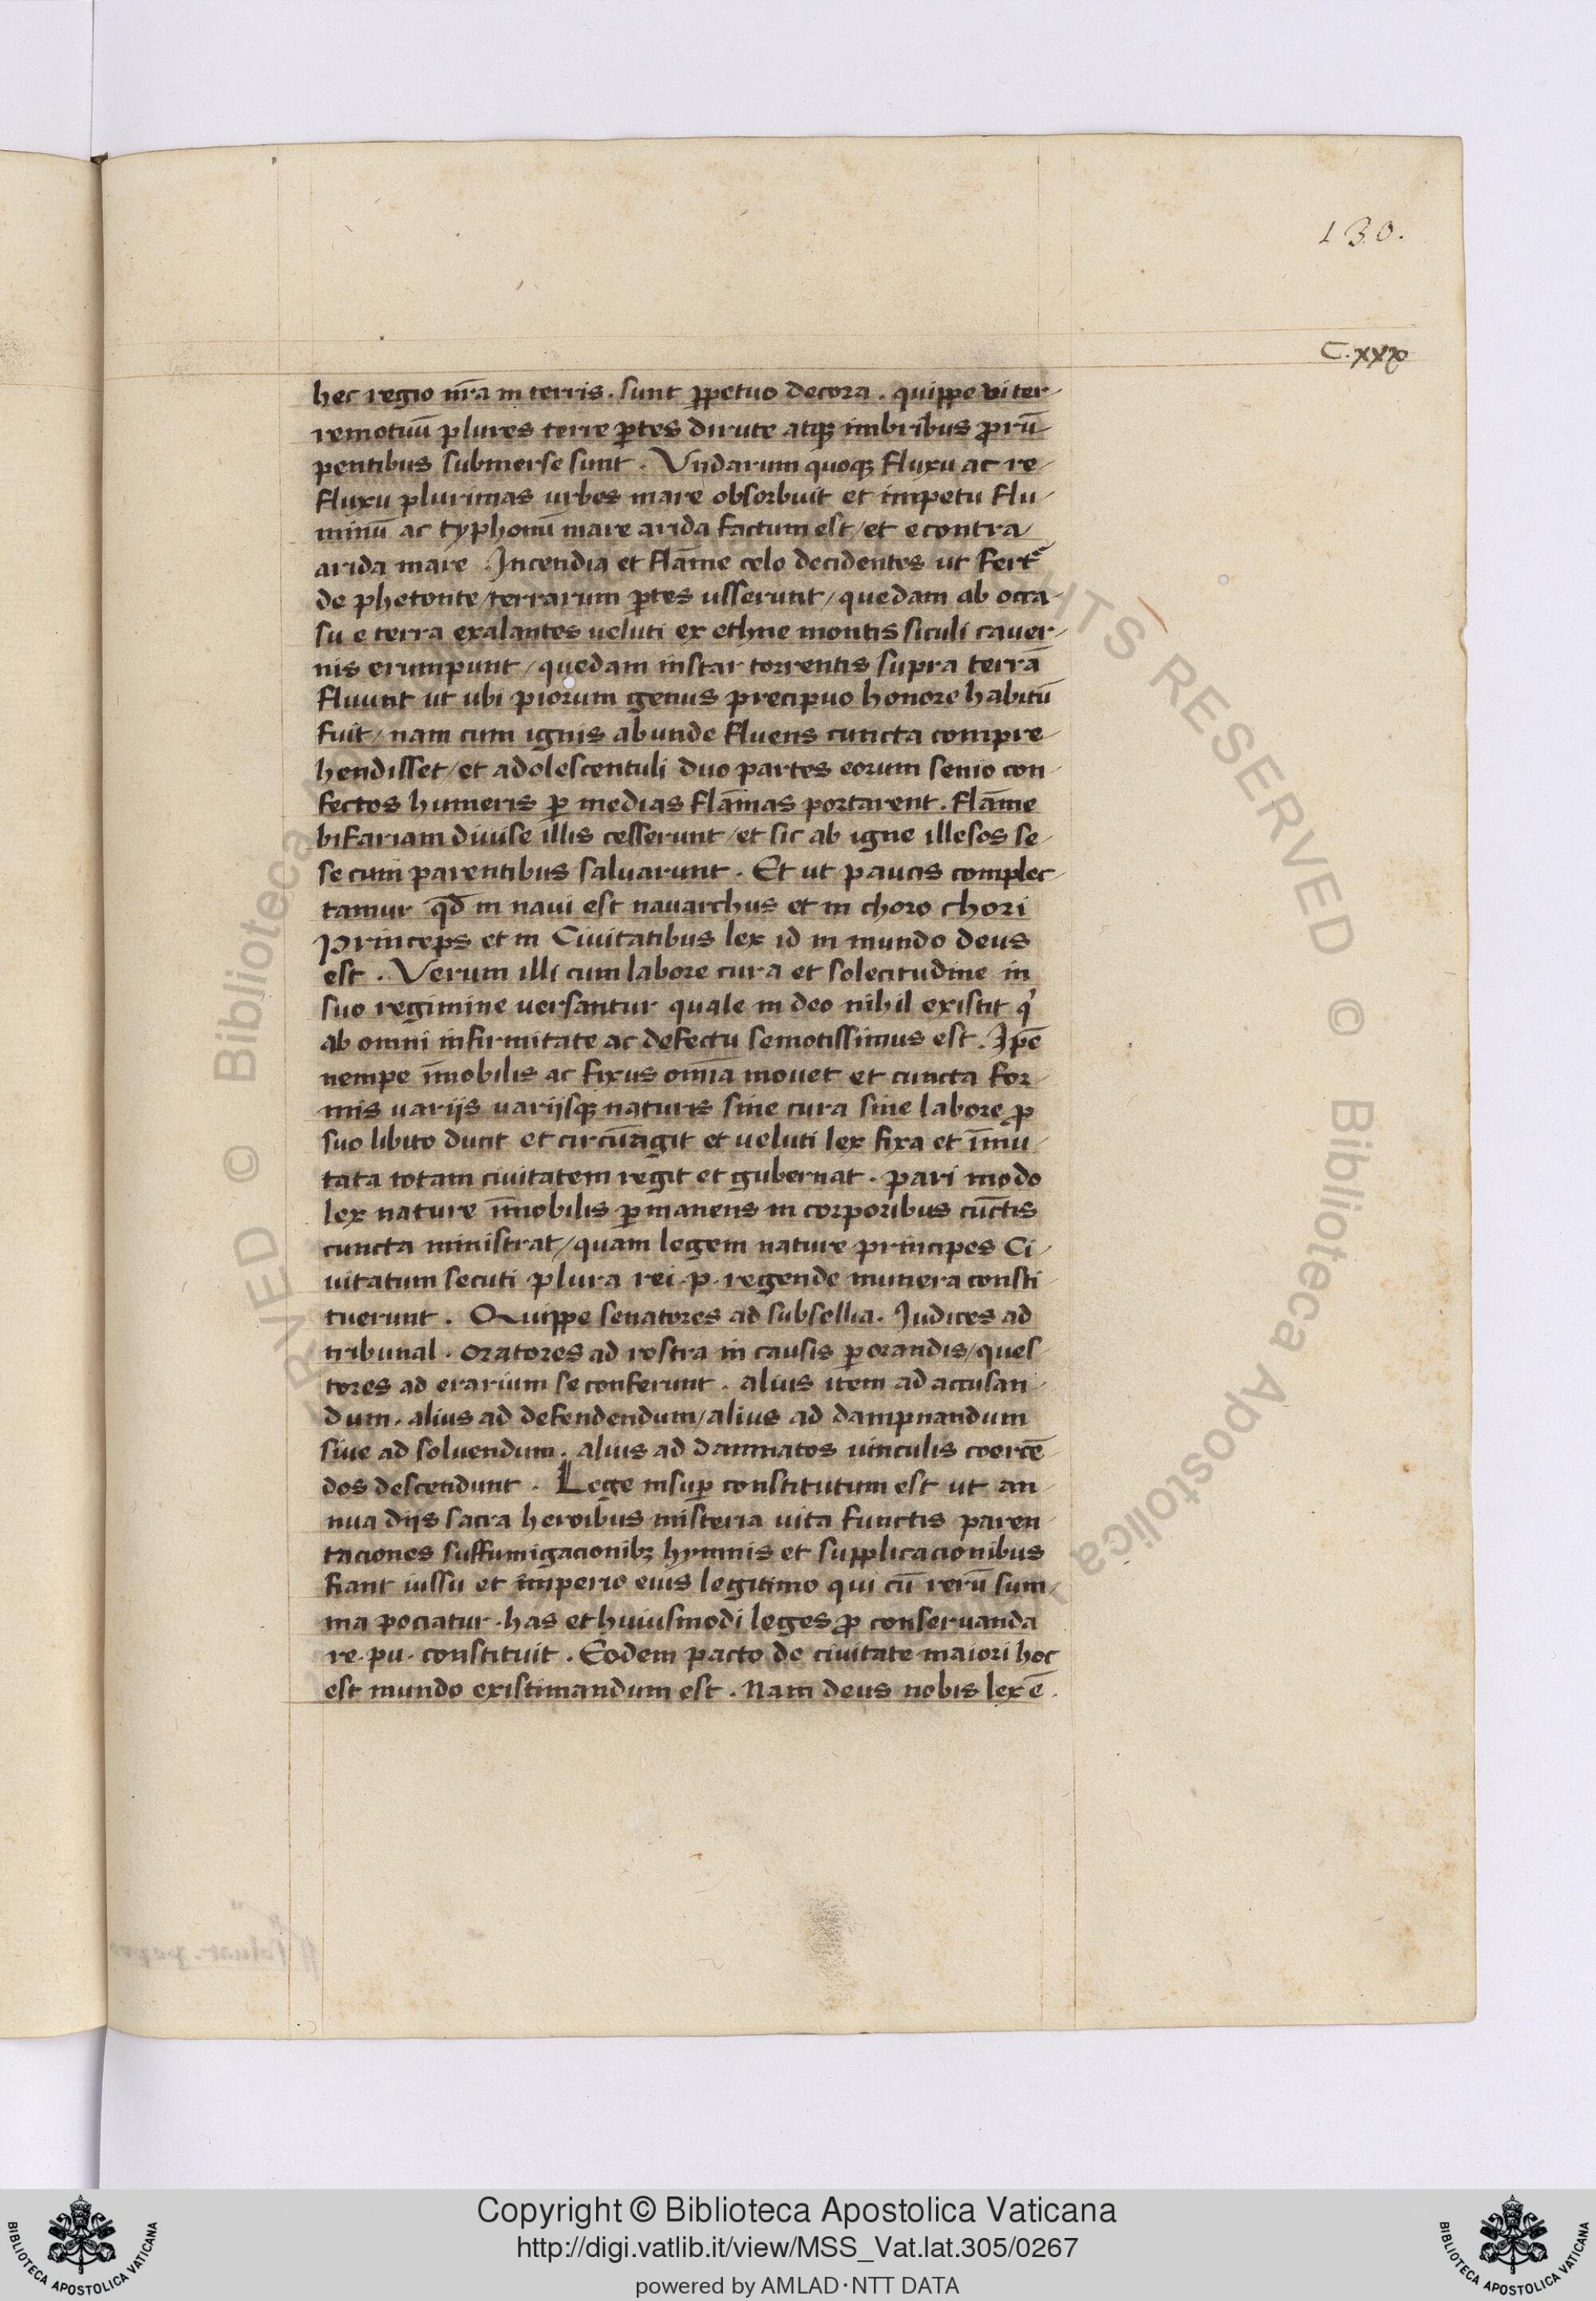 130.
C.xxx
hec regio nr̄a in terris. sunt ꝑpetuo decora. quippe vi ter-
remotuū plures terre ꝑtes dirute atqꝫ imbribus ꝓrū-
pentibus submerse sunt. Vndarum quoqꝫ fluxu ac re-
fluxu plurimas urbes mare obsorbuit et impetu flu-
minū ac typhonū mare arida factum est/et econtra
arida mare Incendia et flām̄e celo decidentes ut fert᷑
de phetonte/terrarum ꝑtes usserunt/quedam ab occa-
su e terra exalantes ueluti ex ethne montis siculi cauer-
nis erumpunt/quedam instar torrentis supra terrā
fluunt ut ubi piorum genus precipuo honore habitū
fuit/nam cum ignis abunde fluens cuncta compre-
hendisset/et adolescentuli duo partes eorum senio con-
fectos humeris ꝑ medias flām̄as portarent. flām̄e
bifariam diuise illis cesserunt/et sic ab igne illesos se-
se cum parentibus saluarunt. Et ut paucis complec-
tamur qd̄ in naui est nauarchus et in choro chori
princeps et in Ciuitatibus lex id in mundo deus
est. Verum illi cum labore cura et solecitudine in
suo regimine uersantur quale in deo nihil existit q'
ab omni infirmitate ac defectu semotissimus est. Ip̄e
nempe īmobilis ac fixus omīa mouet et cuncta for-
mis uarijs uarijsqꝫ naturis sine cura sine labore ꝓ
suo libito ducit et circūagit et ueluti lex fixa et īmu-
tata totam ciuitatem regit et gubernat. pari modo
lex nature īmobilis ꝑmanens in corporibus cūctis
cuncta ministrat/quam legem nature principes Ci-
uitatum secuti plura rei.p. regende munera consti-
tuerunt. Quippe senatores ad subsellia. Iudices ad
tribunal. oratores ad rostra in causis ꝑorandis/ques-
tores ad erarium se conferunt. alius item ad accusan-
dum. alius ad defendendum/alius ad dampnandum
siue ad soluendum. alius ad damnatos uinculis coercē-
dos descendunt. Lege insuꝑ constitutum est ut an-
nua diis sacra heroibus misteria uita functis paren-
taciones suffumigacionibꝫ hymnis et supplicacionibus
fiant iussu et imperio eius legitimo qui cū rerū sum-
ma pociatur. has et huiusmodi leges ꝓ conseruanda
re.pu. constituit. Eodem pacto de ciuitate maiori hoc
est mundo existimandum est. Nam deus nobis lex ē.
Copyright © Biblioteca Apostolica Vaticana
http://digi.vatlib.it/view/MSS_Vat.lat.305/0267
powered by AMLAD·NTT DATA